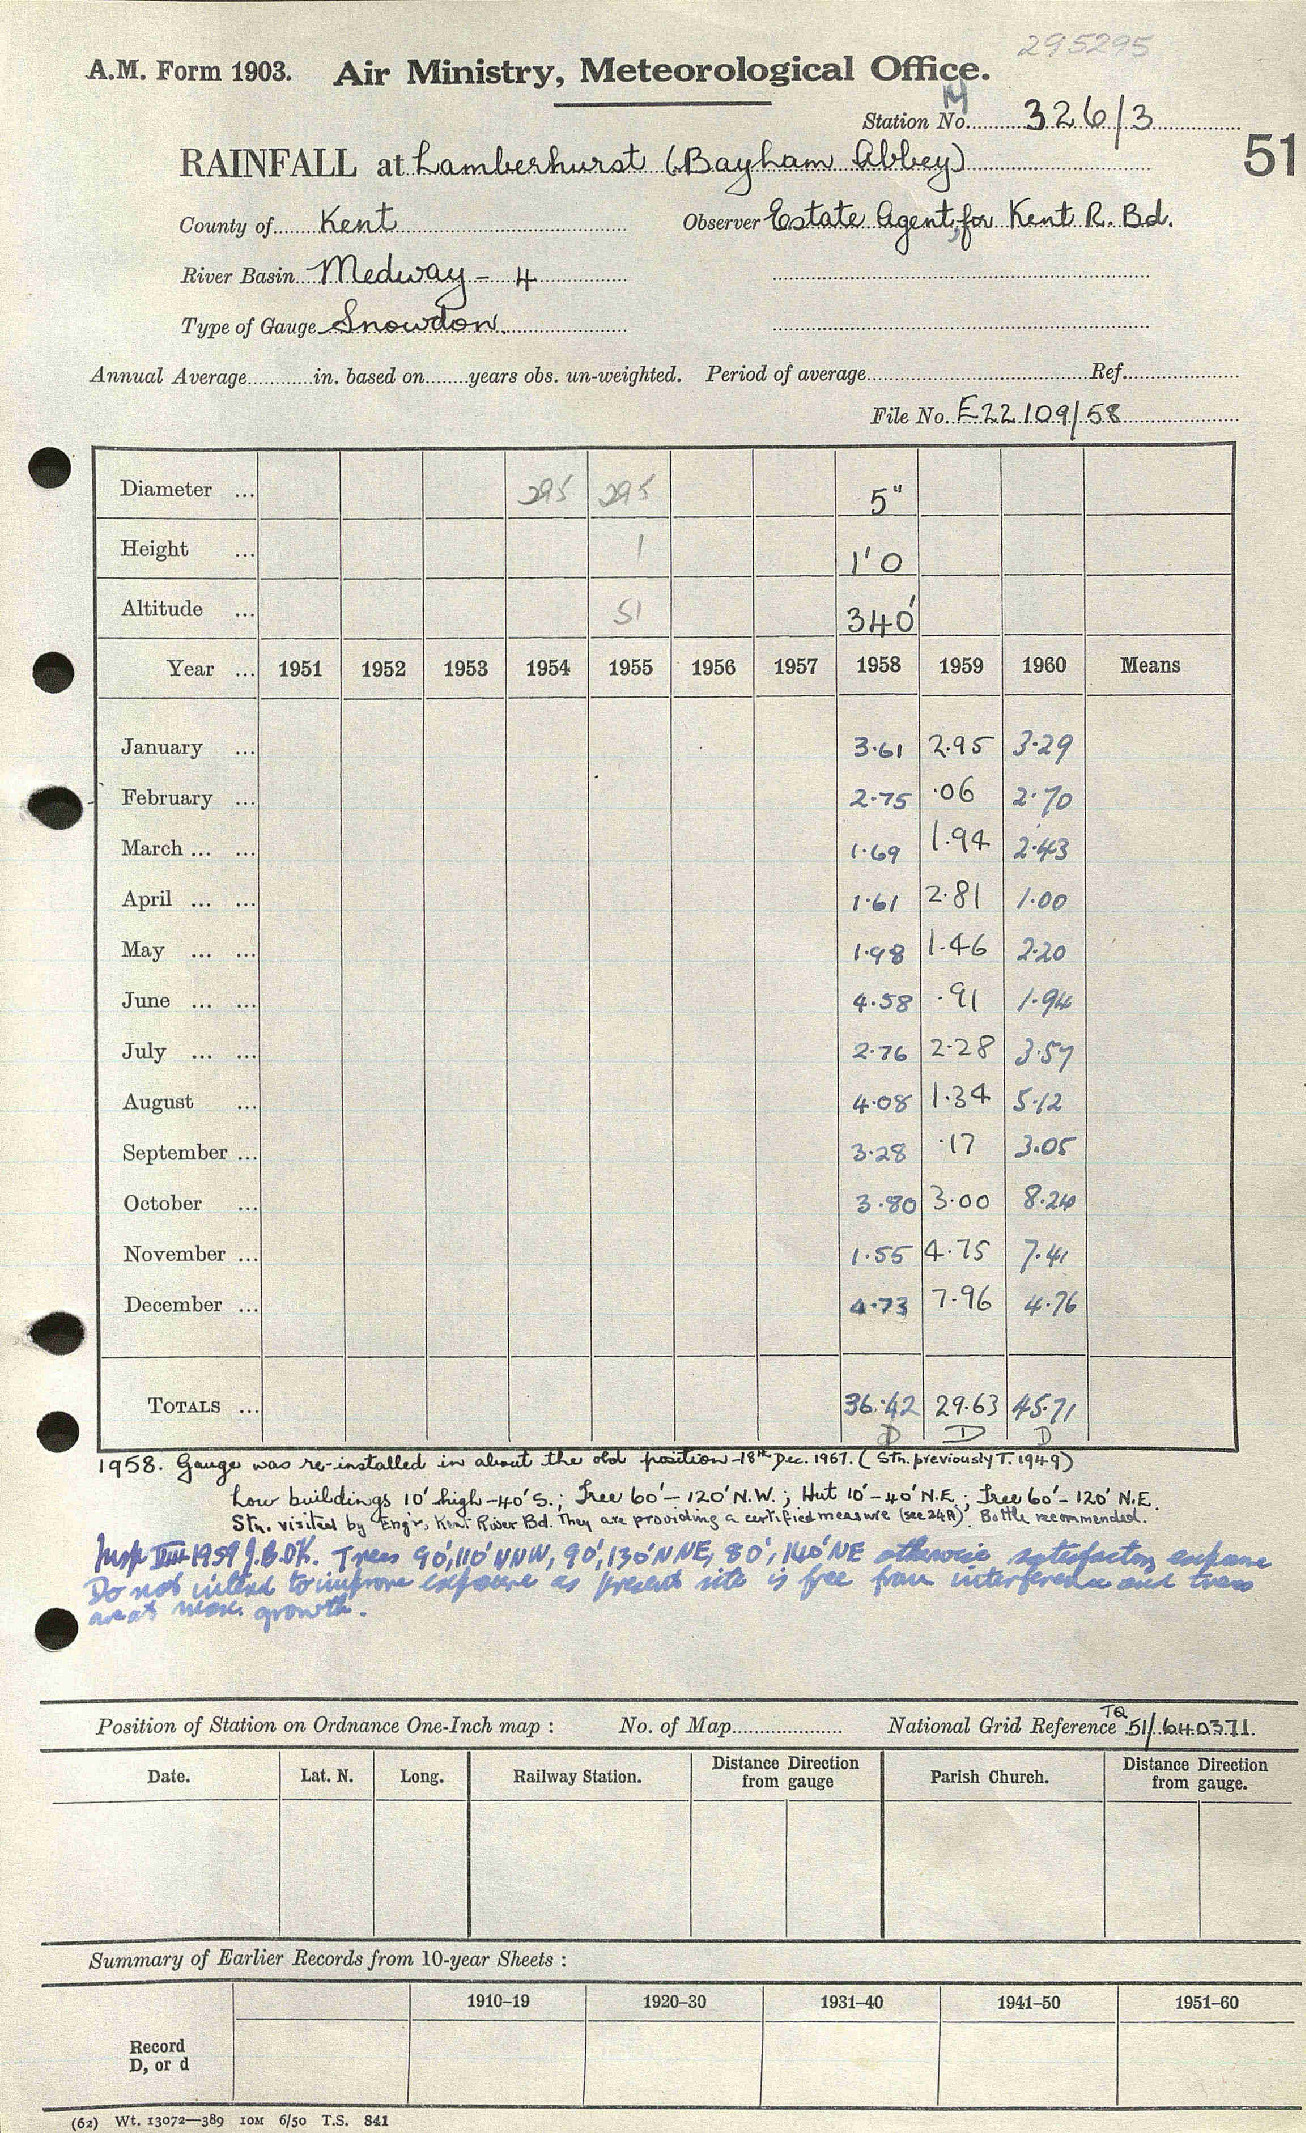 295295
A.M. Form 1903. Air Ministry, Meteorological Office.
M
Station No. 326/3
51
RAINFALL at Lamberhurst (Bayham Abbey)
County of Kent Observer Estate Agent, for Kent R. Bd.
River Basin Medway - 4
Type of Gauge Snowdon
Annual Average in. based on years obs. un-weighted. Period of average Ref.
File No. E22109/58
Diameter ... 295 295 5"
Height ... 1 1'0
Altitude ... 51 340'
Year ... 1951 1952 1953 1954 1955 1956 1957 1958 1959 1960 Means
January ... 3.61 2.95 3.29
February ... 2.75 .06 2.70
March ... ... 1.69 1.94 2.43
April ... ... 1.61 2.81 1.00
May ... ... 1.98 1.46 2.20
June ... ... 4.58 .91 1.94
July ... ... 2.76 2.28 3.57
August ... 4.08 1.34 5.12
September ... 3.28 .17 3.05
October ... 3.80 3.00 8.24
November ... 1.55 4.75 7.41
December ... 4.73 7.96 4.76
TOTALS ... 36.42 29.63 45.71
D D D
1958. Gauge was re-installed in about the old position - 18th Dec. 1957. (Stn. previously T. 1949)
Low buildings 10' high - 40' S.; Tree 60' - 120' N.W.; Hut 10' - 40' N.E.; Tree 60' - 120' N.E.
Stn. visited by Eng'r, Kent River Bd. They are providing a certified measure (see 24A). Bottle recommended.
Insp 1959 J.B.DK. Trees 90', 110' NNW, 90', 130' NNE, 80', 140' NE otherwise satisfactory exposure
Do not intend to improve exposure as present site is free from interference and trees
are at max. growth.
Position of Station on Ordnance One-Inch map : No. of Map National Grid Reference TQ 51/640371.
Date. Lat. N. Long. Railway Station. Distance Direction from gauge Parish Church. Distance Direction from gauge.
Summary of Earlier Records from 10-year Sheets :
1910–19 1920–30 1931–40 1941–50 1951–60
Record
D, or d
(62) Wt. 13072—389 10M 6/50 T.S. 841